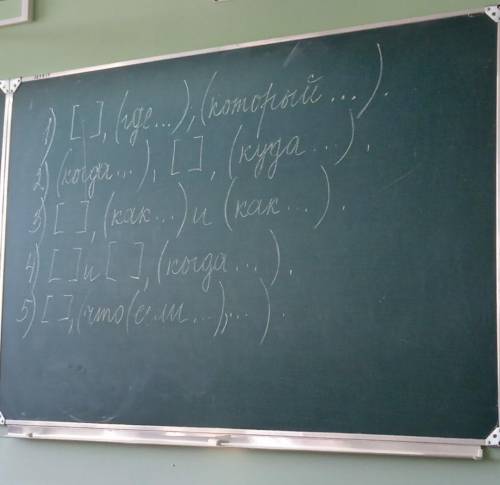 1) [ ], (где...), (который ...).
2) (когда...), [ ], (куда ...).
3) [ ], (как...) и (как ...).
4) [ ] и [ ], (когда ...).
5) [ ], (что (если ...), ...).